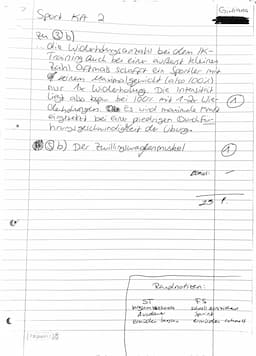 Sport KA 2
zu ③ b)
... die Wiederholungsanzahl bei dem IK-
Training auch bei einer äußerst kleinen
Zahl. Oftmals schafft ein Sportler mit
seinem Maximalgewicht (also 100%)
nur 1x Wiederholung. Die Intensität
liegt also bei 100% mit 1-2x Wie-
derholungen. Es wird maximale
bei einer niedrigen Durchfüh-
rungsgeschwindigkeit der Übung.
①
⑤ b) Der Zwillingswadenmuskel
①
23 P.
Randnotizen:
ST
FS
Ausdauer
Sprint
ermüden langsam
ermüden schnell